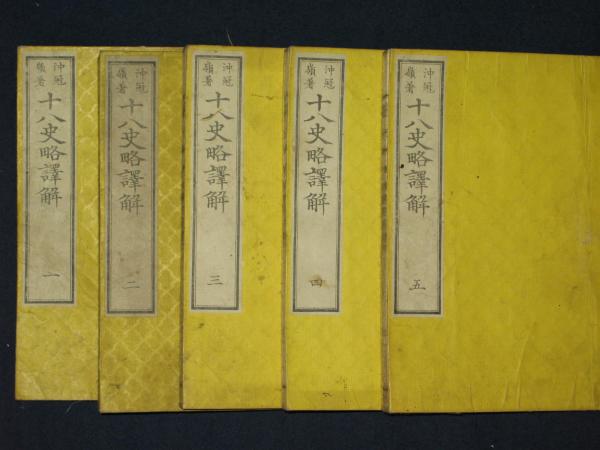 沖冠
嶺著
十八史略譯解
一
沖冠
嶺著
十八史略譯解
二
沖冠
嶺著
十八史略譯解
三
沖冠
嶺著
十八史略譯解
四
沖冠
嶺著
十八史略譯解
五